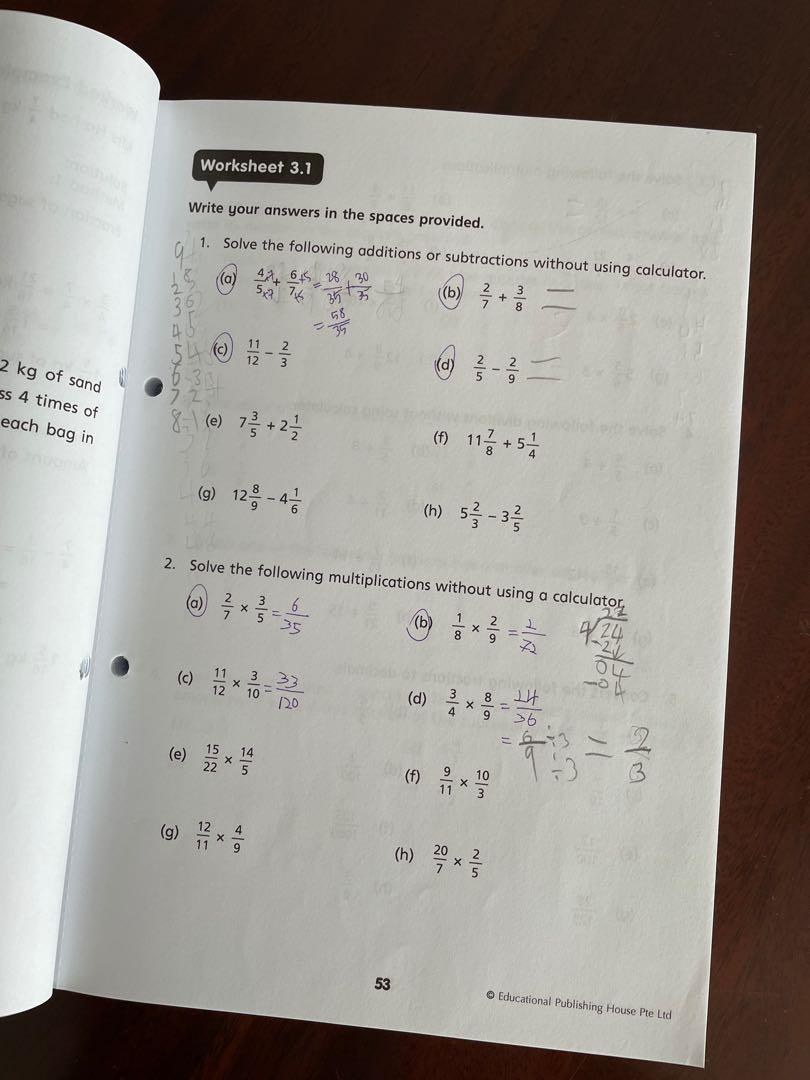 Worksheet 3.1
Write your answers in the spaces provided.
1. Solve the following additions or subtractions without using calculator.
(a) 4/5 + 6/7 = 28/35 + 30/35
= 58/35
(b) 2/7 + 3/8 =
(c) 11/12 - 2/3
(d) 2/5 - 2/9 =
(e) 7 3/5 + 2 1/2
(f) 11 7/8 + 5 1/4
(g) 12 8/9 - 4 1/6
(h) 5 2/3 - 3 2/5
2 kg of sand
ss 4 times of
each bag in
2. Solve the following multiplications without using a calculator.
(a) 2/7 × 3/5 = 6/35
(b) 1/8 × 2/9 = 2/72
(c) 11/12 × 3/10 = 33/120
(d) 3/4 × 8/9 = 24/36
= 6/9 ÷3 ÷3 = 2/3
(e) 15/22 × 14/5
(f) 9/11 × 10/3
(g) 12/11 × 4/9
(h) 20/7 × 2/5
53
© Educational Publishing House Pte Ltd